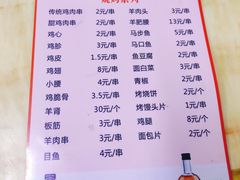 传统鸡肉串 2元/串 羊肉头 3元/串
甜鸡肉串 2元/串 羊肥腰 13元/串
鸡心 2元/串 马步鱼 5元/串
鸡胗 3元/串 马口鱼 2元/串
鸡皮 1.5元/串 鱼豆腐 2元/串
鸡翅 8元/串 圆白菜 3元/串
小腰 4元/串 青椒 2元/串
鸡脆骨 3.5元/串 烤烧饼 2元/个
羊肾 30元/个 烤馒头片 1元/串
板筋 3元/串 鸡腿 8元/个
羊肉串 3元/串 面包片 2元/个
目鱼 4元/串